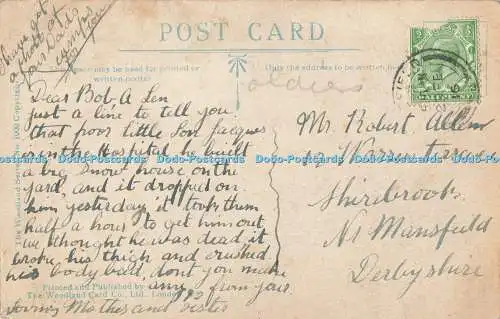 have got
a photo of
your Dads
for you
POST CARD
space may be used for printed or
written matter
Only the address to be written here.
soldiers
The Woodland Series No. 1000 Copyright
Dear Bob, A Len
just a line to tell you
that poor little Son Jacques
or in the Hospital, he built
a big snow house on the
yard, and it dropped on
him yesterday it took them
half a hour to get him out,
we thought he was dead, it
broke, his thigh and crushed
his body bad, dont you make
any from yours
Mother and sister
Mr. Robert Allen
Warren Terrace
Shirebrook
Nr Mansfield
Derbyshire
Printed and Published by
The Woodland Card Co., Ltd. London
Dodo-Postcards Dodo-Postcards Dodo-Postcards Dodo-Postcards Dodo-Postcards Dodo-Postcards